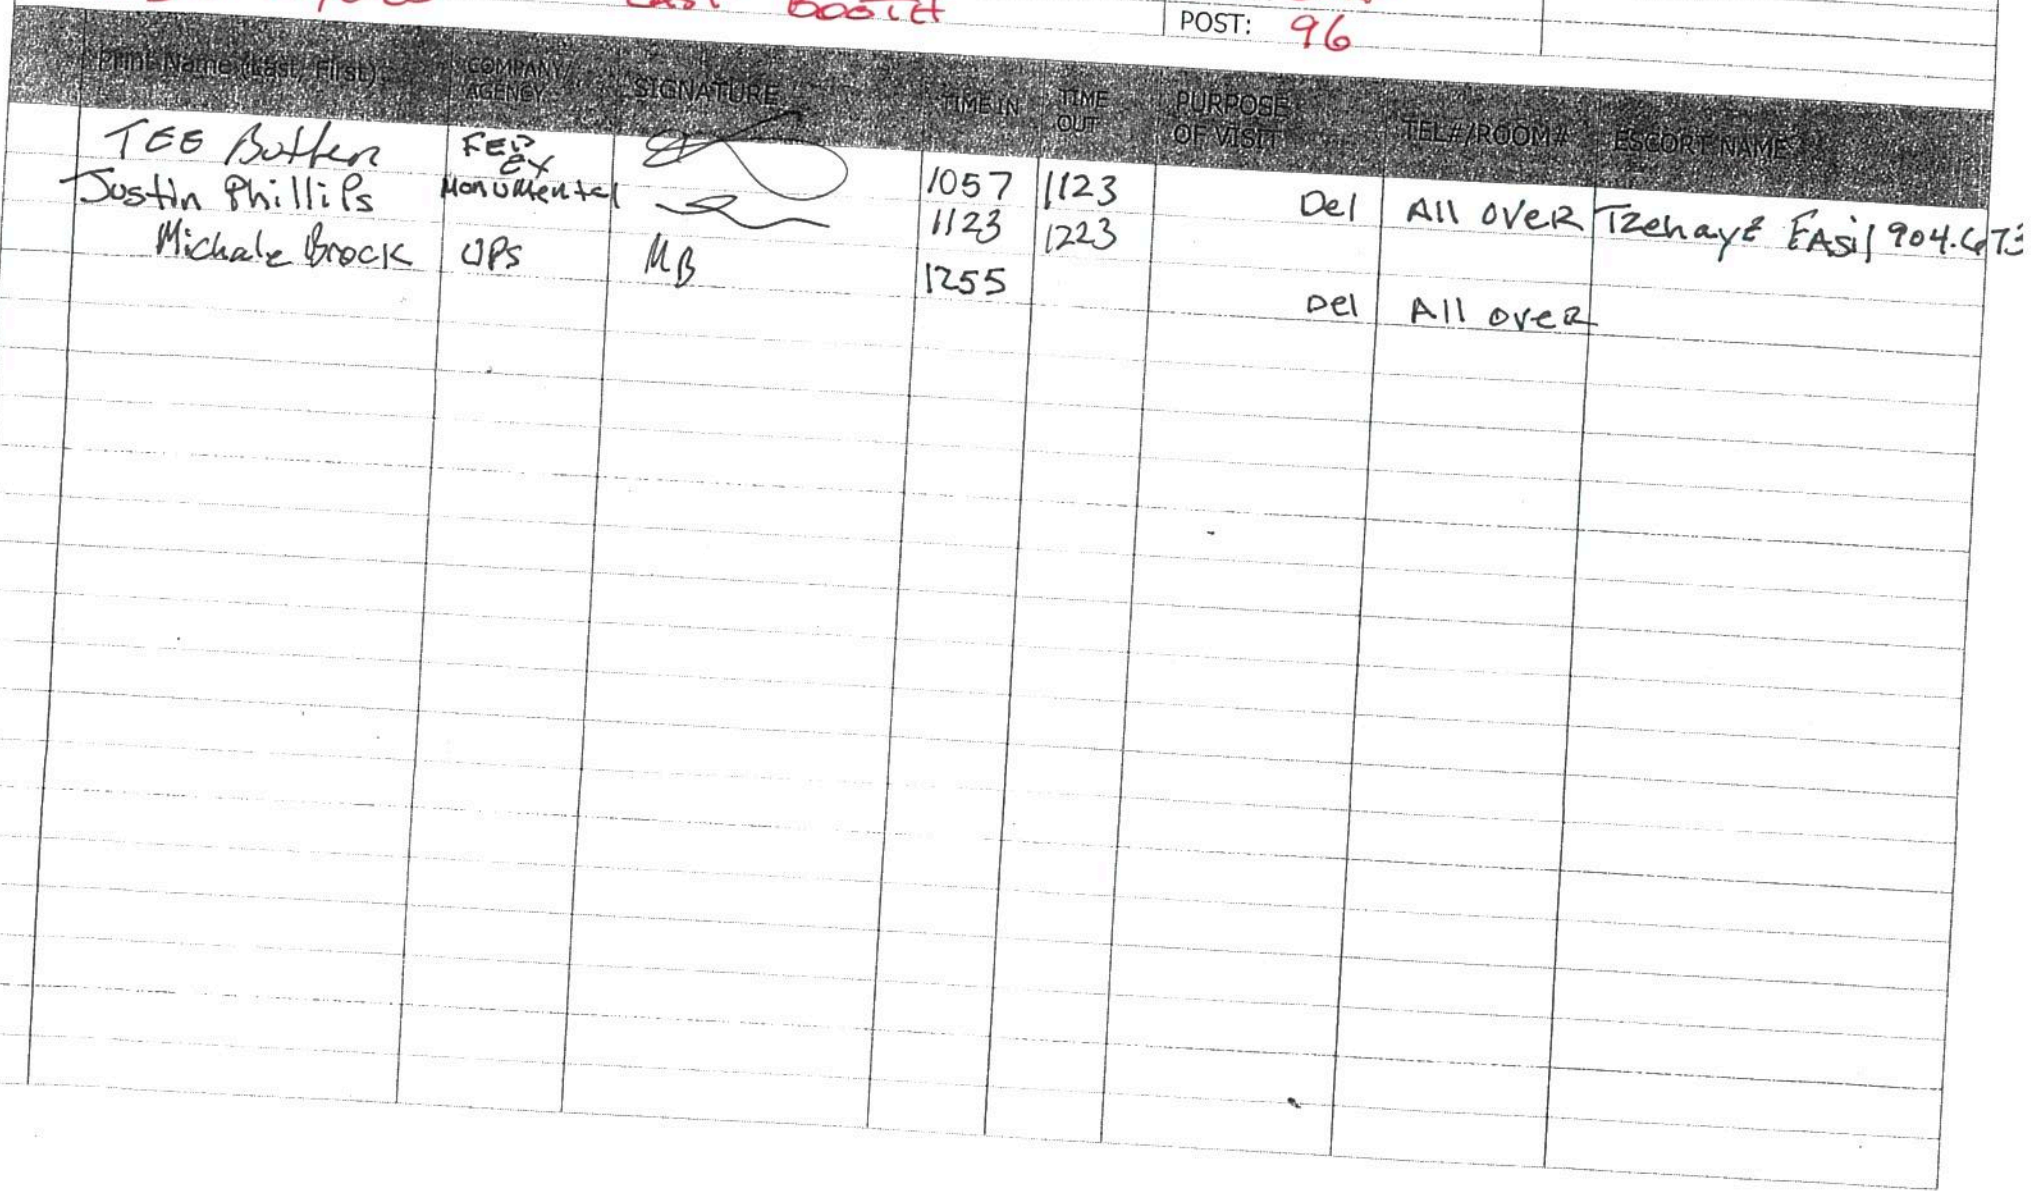 East Booth
POST: 96
Print Name (Last, First) COMPANY/ AGENCY SIGNATURE TIME IN TIME OUT PURPOSE OF VISIT TEL#/ROOM# ESCORT NAME
TEE FED EX 1057 1123 Del All OVER
Justin Phillips Monumental 1123 1223 Tzehaye FAsil 904.673
Michale Brock UPS MB 1255 Del All over